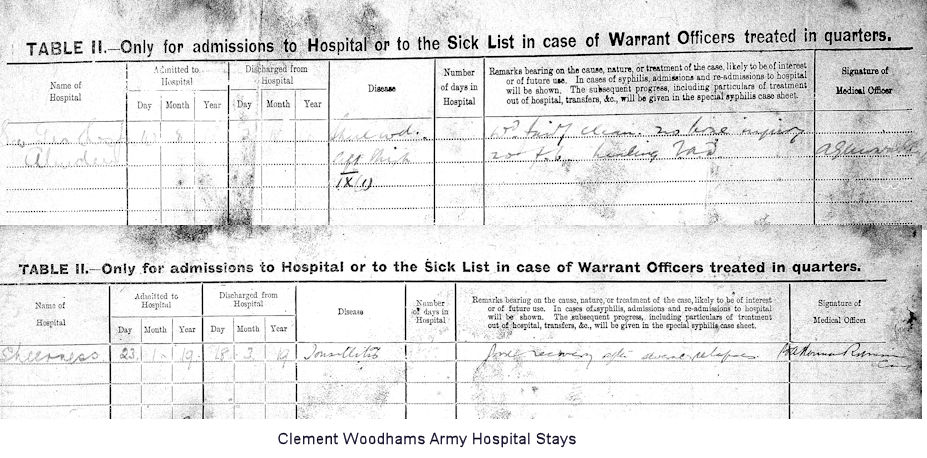 TABLE II.—Only for admissions to Hospital or to the Sick List in case of Warrant Officers treated in quarters.
Name of Hospital
Admitted to Hospital
Day Month Year
Discharged from Hospital
Day Month Year
Disease
Number of days in Hospital
Remarks bearing on the cause, nature, or treatment of the case, likely to be of interest
or of future use. In cases of syphilis, admissions and re-admissions to hospital
will be shown. The subsequent progress, including particulars of treatment
out of hospital, transfers, &c., will be given in the special syphilis case sheet.
Signature of Medical Officer
wd. fairly clean. no bone injury
Aberdeen healing
IX (1)
TABLE II.—Only for admissions to Hospital or to the Sick List in case of Warrant Officers treated in quarters.
Name of Hospital
Admitted to Hospital
Day Month Year
Discharged from Hospital
Day Month Year
Disease
Number of days in Hospital
Remarks bearing on the cause, nature, or treatment of the case, likely to be of interest
or of future use. In cases of syphilis, admissions and re-admissions to hospital
will be shown. The subsequent progress, including particulars of treatment
out of hospital, transfers, &c., will be given in the special syphilis case sheet.
Signature of Medical Officer
Sheerness 23 1 19 18 3 19 Tonsillitis recovery after several relapses
Clement Woodhams Army Hospital Stays